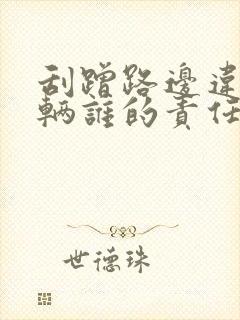 刮蹭路邊違
輛誰的責任
世德珠